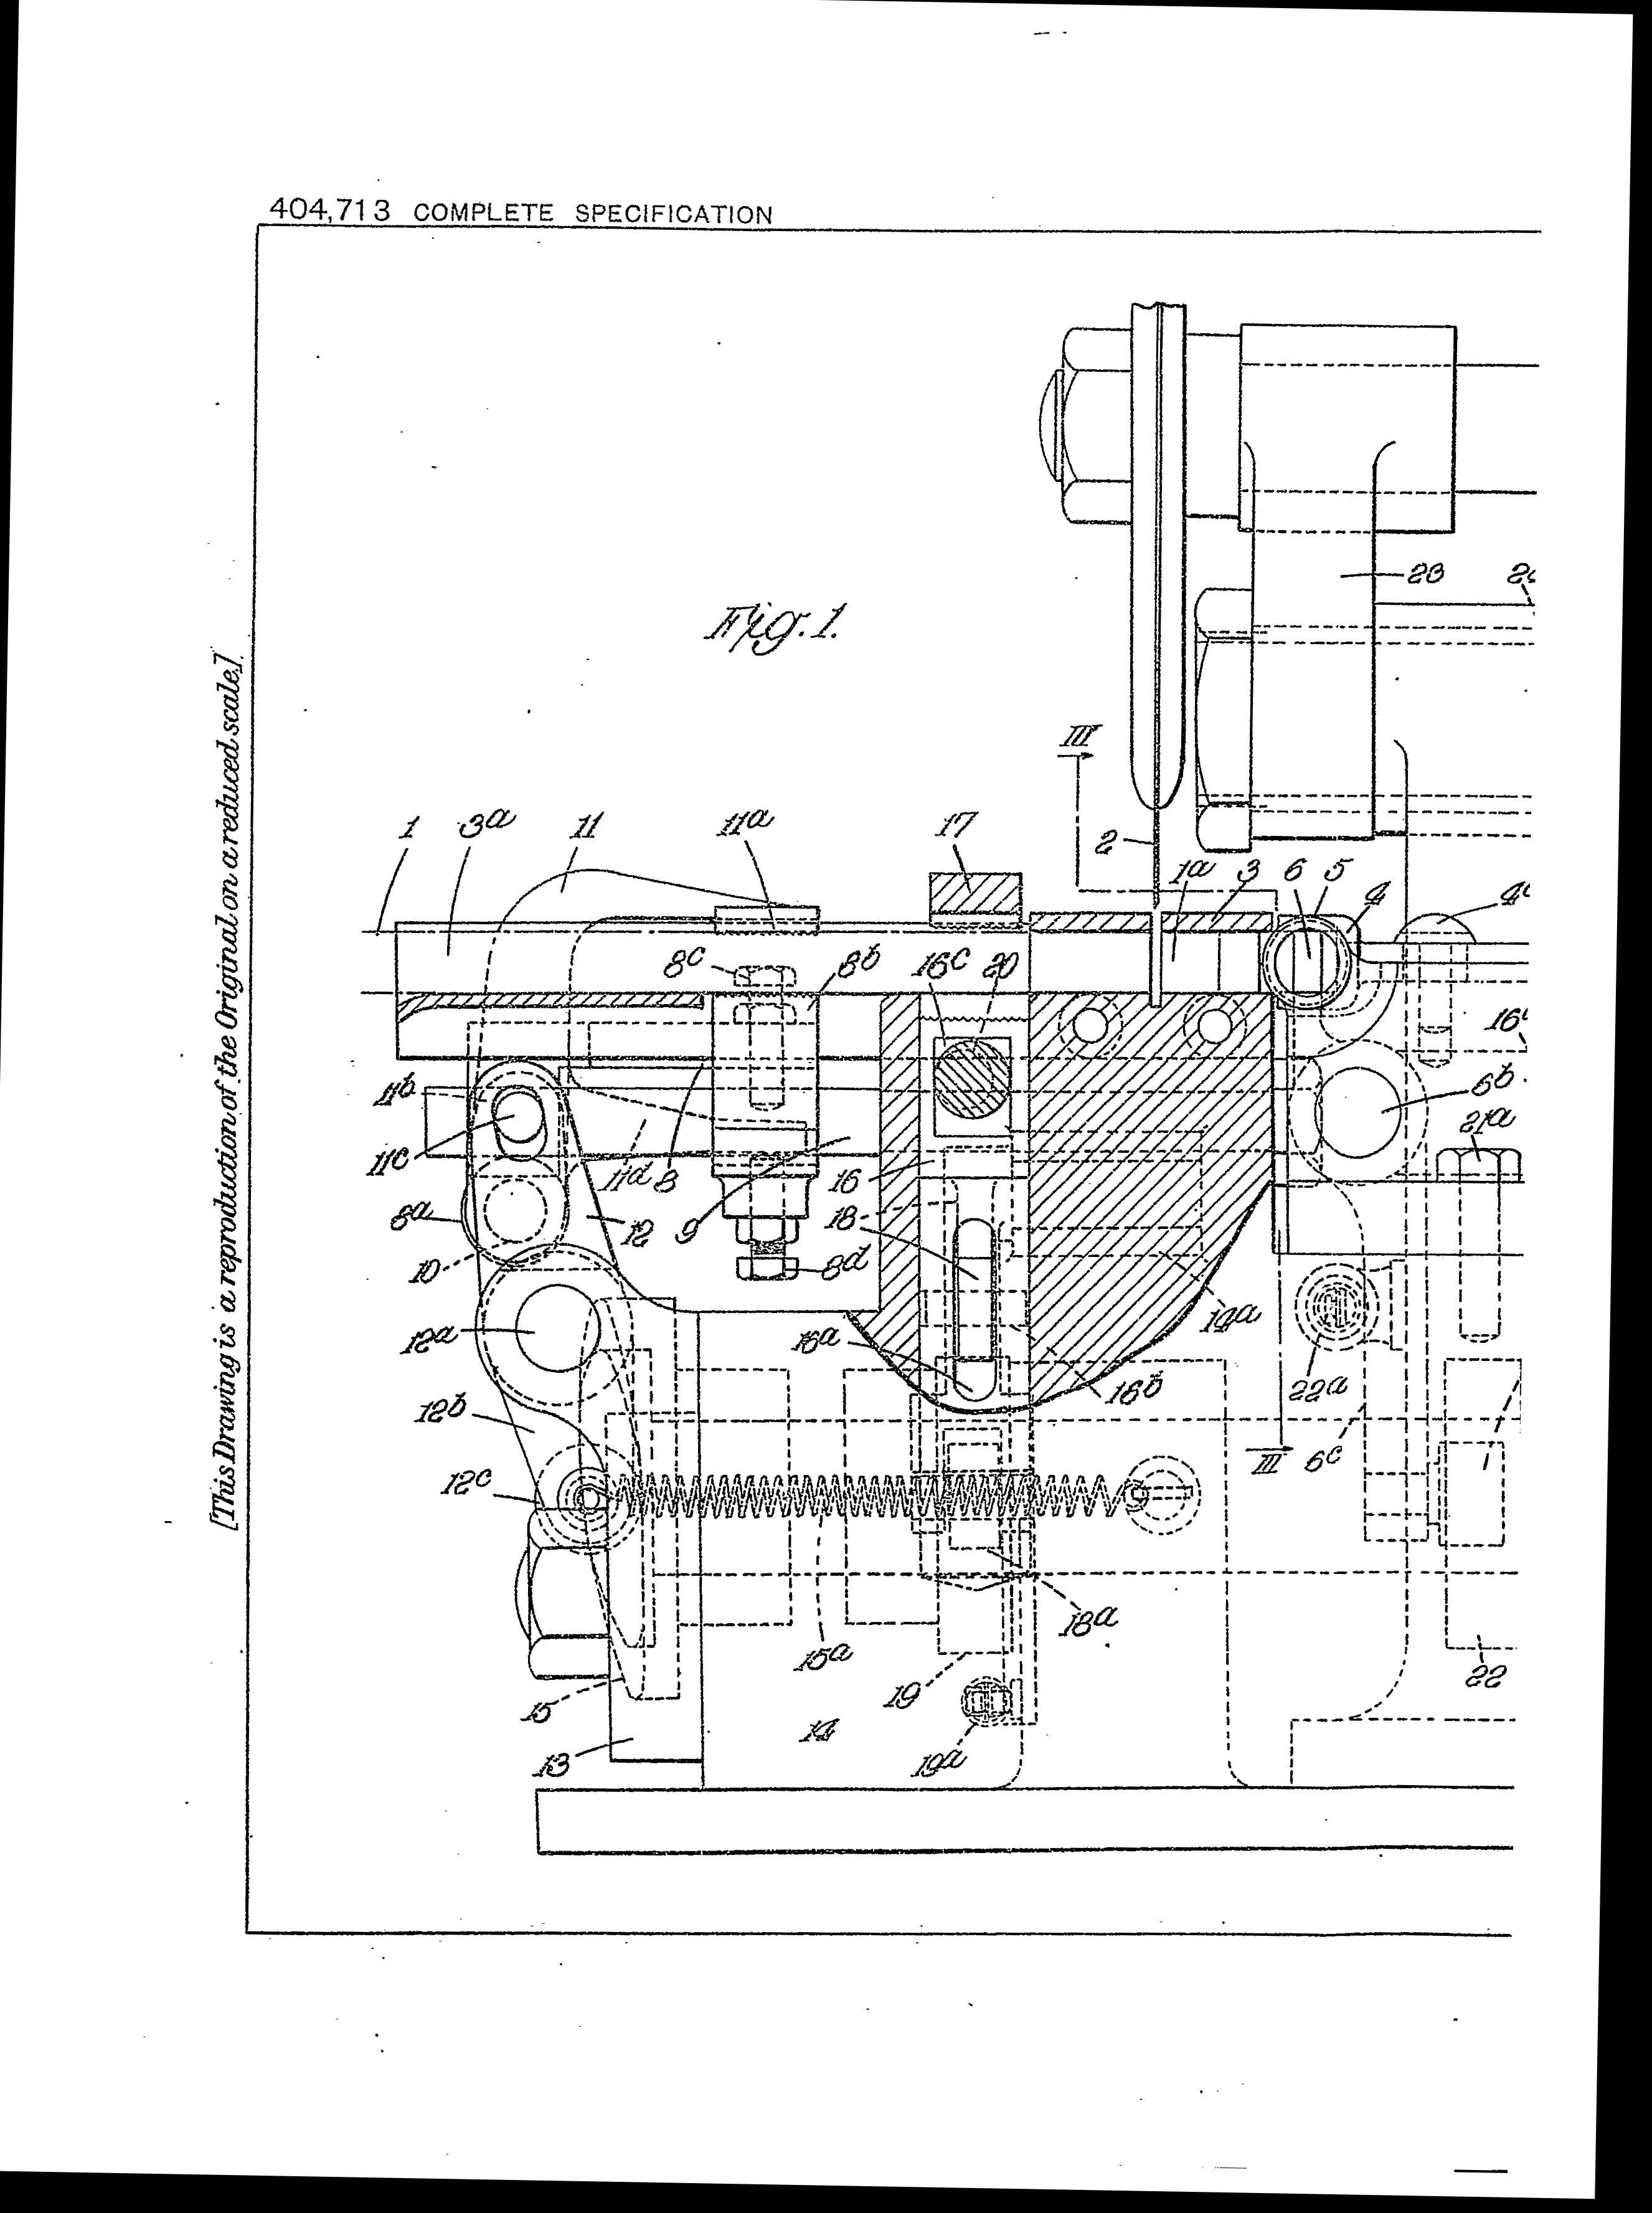 404,713 COMPLETE SPECIFICATION
[This Drawing is a reproduction of the Original on a reduced scale.]
Fig. 1.
23
III
2
1 3a 11 11a 17
1a 3 6 5 4
8c 8b 16c 20
11b
6b
21a
11c 11d 8 9 16
8a 12 18
10 8d
14a
12a 16a
16b 22a
12b
12c III 6c
18a
15a
19 22
15
14
13 19a